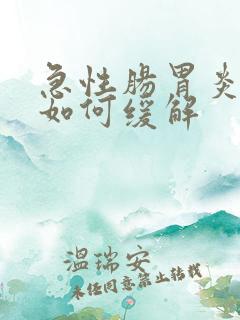 急性腸胃炎
如何缓解
温瑞安
未任同意禁止转载